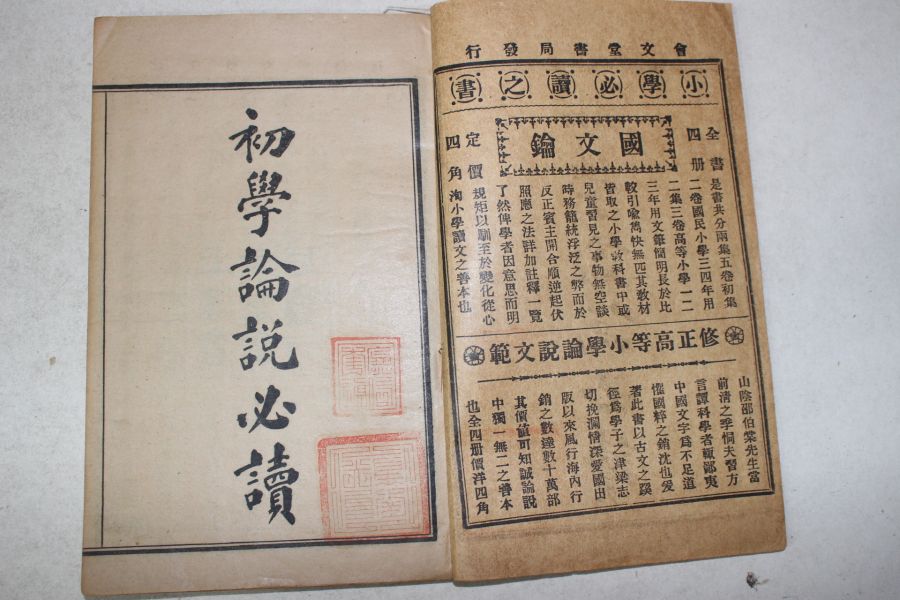 會文堂書局發行
小學必讀之書
國文鑰
全書四册
定價四角
是書共分兩集五卷初集
二卷國民小學三四年用
二集三卷高等小學一二
三年用文筆簡明長於比
較引喩雋快無匹其敎材
皆取之小學敎科書中或
兒童習見之事物無空談
時務籠統浮泛之弊而於
反正賓主開合順逆起伏
照應之法詳加註釋一覽
了然俾學者因意思而明
規矩以馴至於變化從心
洵小學讀文之善本也
修正高等小學論說文範
山陰邵伯棠先生當
前淸之季恫夫習方
言譚科學者輒鄙夷
中國文字爲不足道
慛國粹之銷沈也爰
著此書以古文之蹊
徑爲學子之津梁志
切挽瀾情深愛國出
版以來風行海內行
銷之數達數十萬部
其價値可知誠論說
中獨一無二之善本
也全四册價洋四角
初學論說必讀